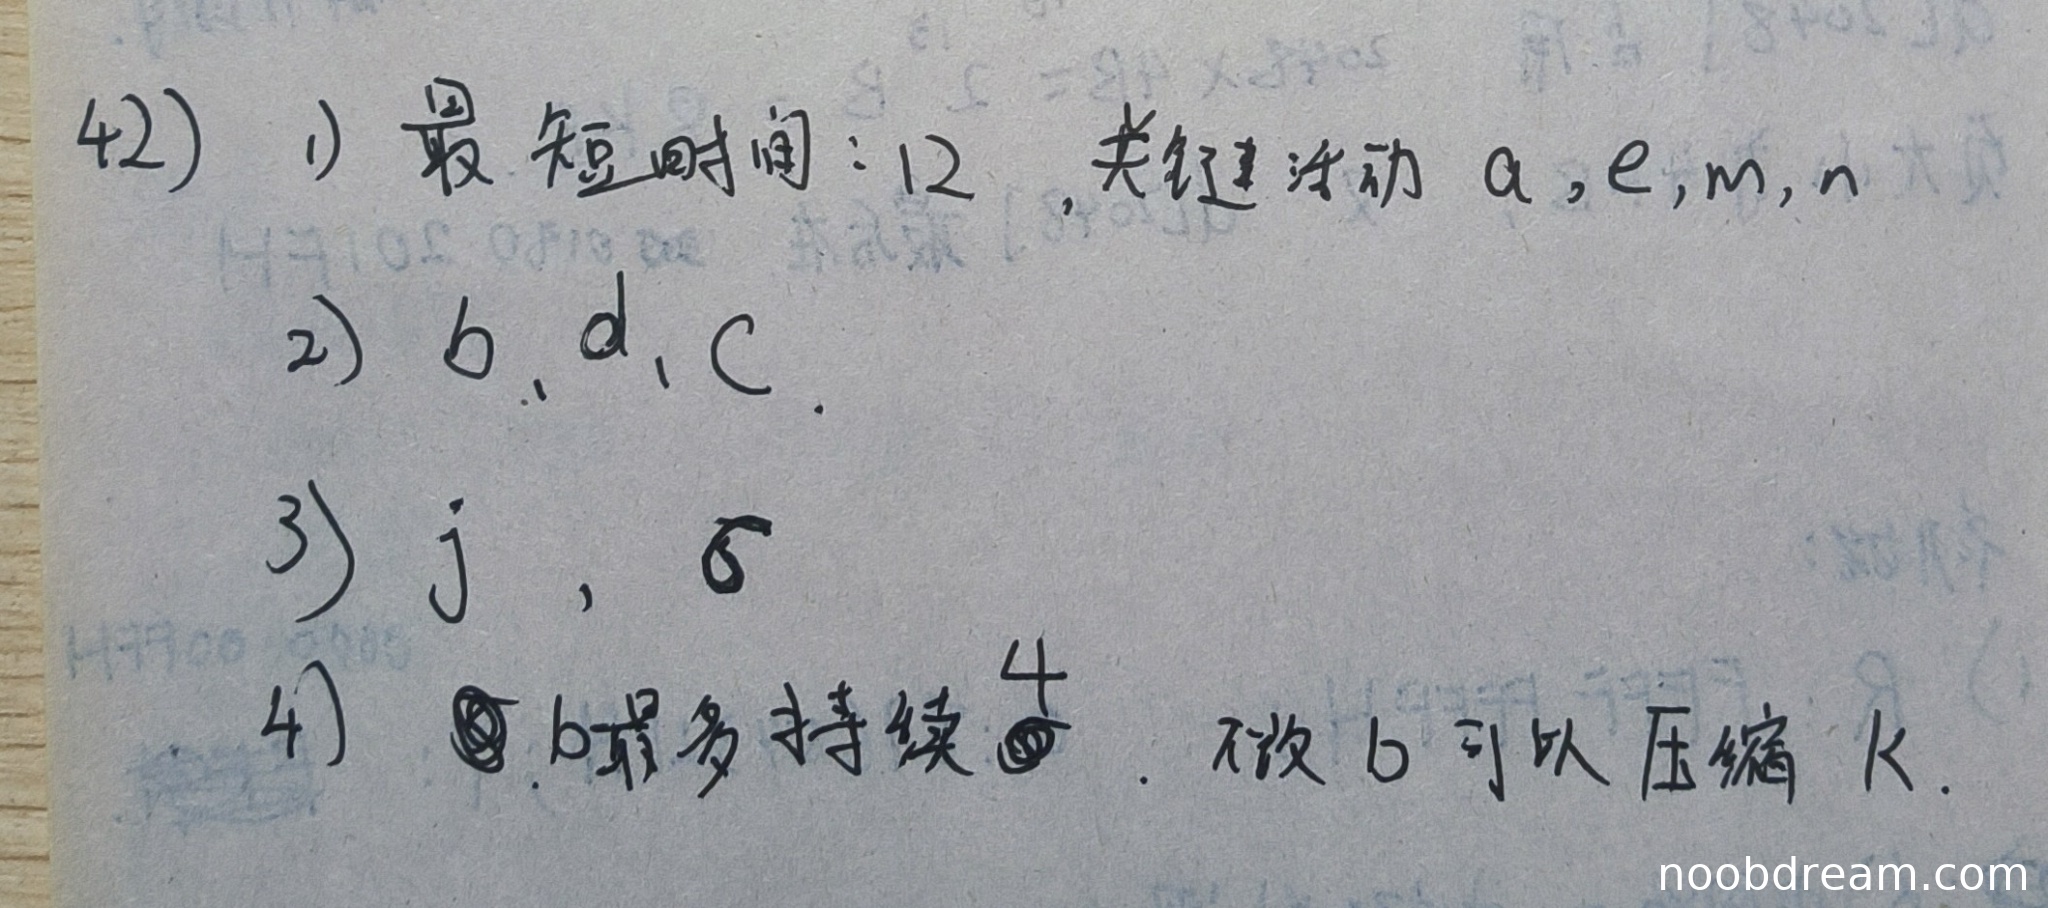 42) 1) 最短时间:12 ,关键活动 a,e,m,n
2) b、d、c.
3) j , 6
4) b最多持续4. 不做b可以压缩k.
noobdream.com